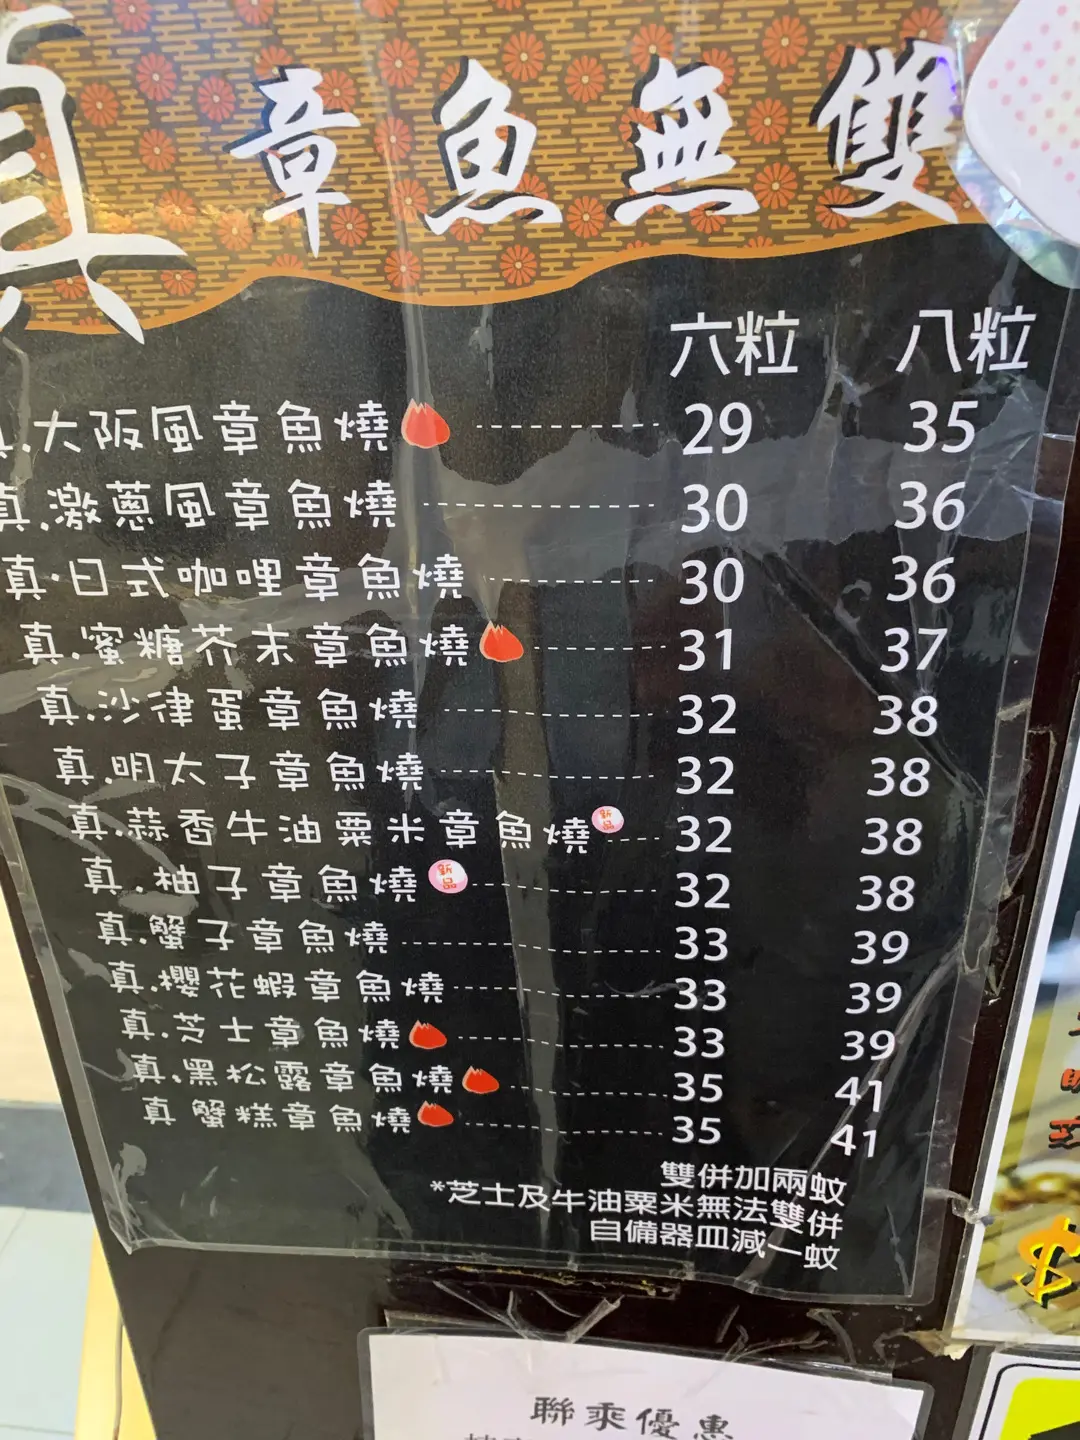 真 章魚無雙
六粒 八粒
真.大阪風章魚燒 29 35
真.激蔥風章魚燒 30 36
真.日式咖哩章魚燒 30 36
真.蜜糖芥末章魚燒 31 37
真.沙律蛋章魚燒 32 38
真.明太子章魚燒 32 38
真.蒜香牛油粟米章魚燒 新品 32 38
真.柚子章魚燒 新品 32 38
真.蟹子章魚燒 33 39
真.櫻花蝦章魚燒 33 39
真.芝士章魚燒 33 39
真.黑松露章魚燒 35 41
真 蟹糕章魚燒 35 41
雙併加兩蚊
*芝士及牛油粟米無法雙併
自備器皿減一蚊
$
聯乘優惠